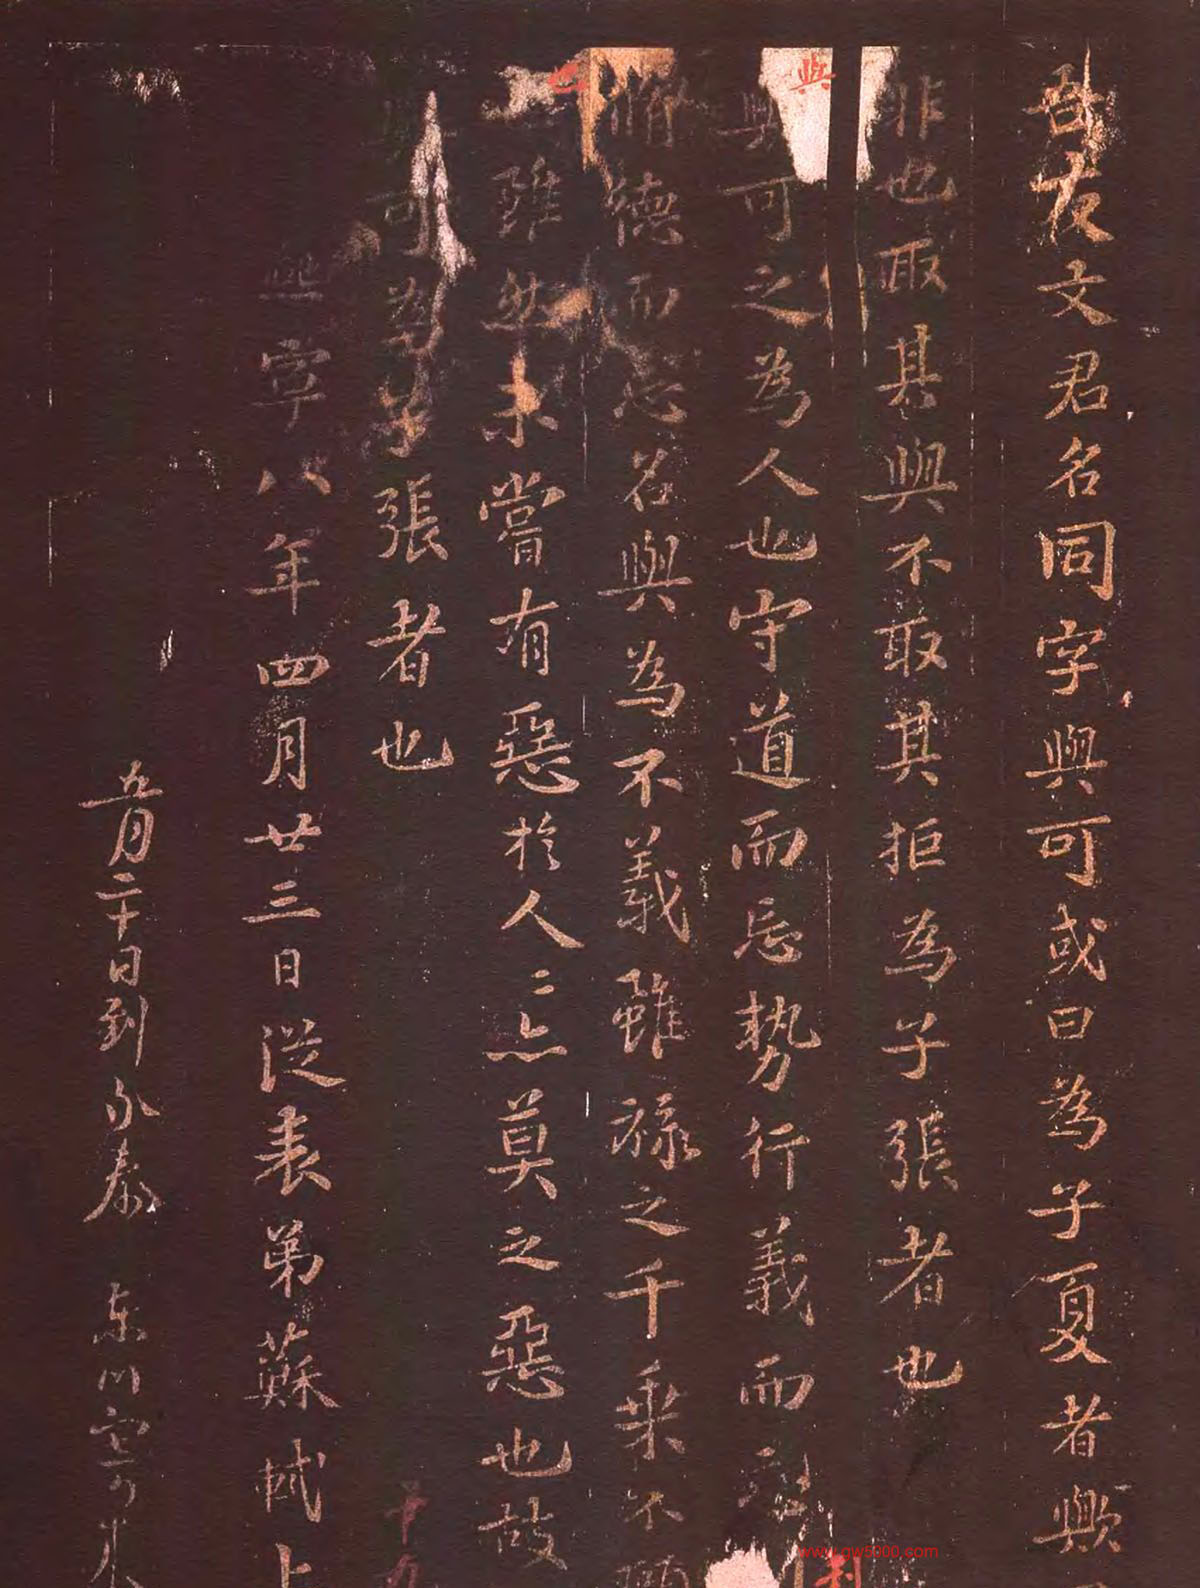 吾友文君名同字與可或曰為子夏者歟
非也取其與不取其拒為子張者也
與可之為人也守道而忘勢行義而忘
與
脩德而忘名與為不義雖祿之千乘不顧
也雖然未嘗有惡於人人亦莫之惡也故
與可為子張者也
熙寧八年四月廿三日從表弟蘇軾上
五月二十日到永泰 東川
十九
利
www.gw5000.com